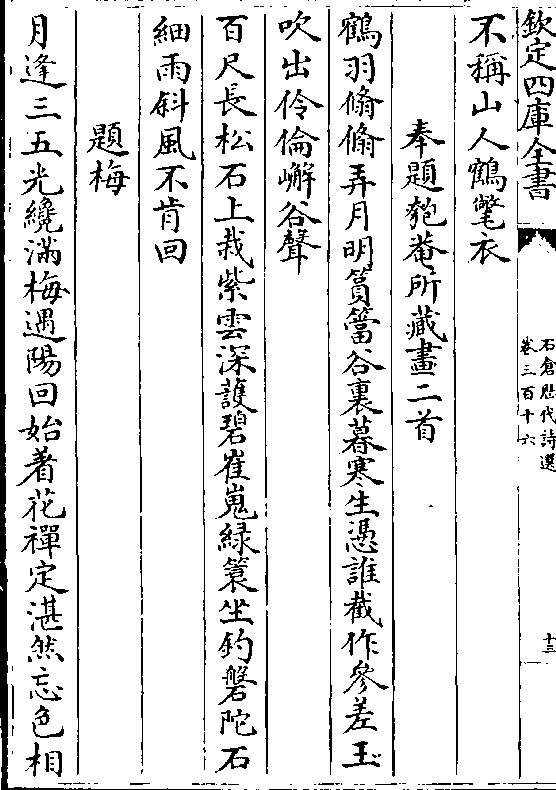 欽定四庫全書
石倉歷代詩選
卷三百十六
十三
不稱山人鶴氅衣
奉題匏菴所藏畫二首
鶴羽翛翛弄月明篔簹谷裏暮寒生憑誰截作參差玉
吹出伶倫嶰谷聲
百尺長松石上栽紫雲深護碧崔嵬綠簑坐釣磐陀石
細雨斜風不肯回
題梅
月逢三五光纔滿梅遇陽回始着花禪定湛然忘色相